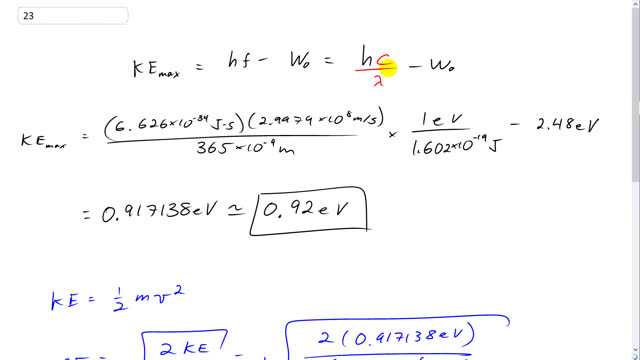 23
KE_max = hf - W_0 = hc/λ - W_0
KE_max = (6.626×10^-34 J·s)(2.9979×10^8 m/s)/(365×10^-9 m) × 1eV/(1.602×10^-19 J) - 2.48eV
= 0.917138eV ≃ 0.92eV
KE = 1/2 mv^2
2 KE = 2(0.917138eV)